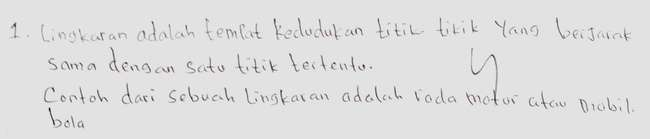 1. Lingkaran adalah temPat kedudukan titik titik Yang berjarak
sama dengan satu titik tertentu.
Contoh dari sebuah Lingkaran adalah roda motor atau mobil.
bola